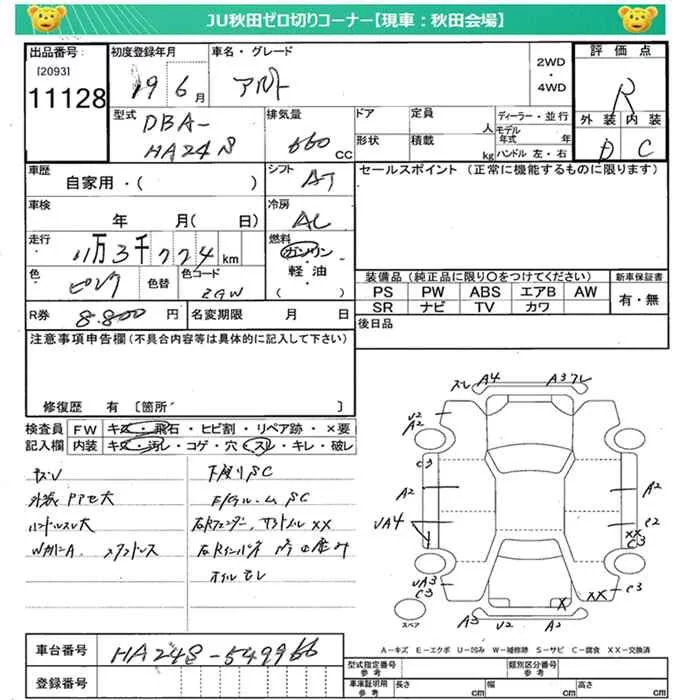 JU秋田ゼロ切りコーナー【現車：秋田会場】
出品番号
[2093]
11128
初度登録年月
19 6月
車名・グレード
アルト
2WD
・
4WD
評価点
R
外装 内装
D C
型式
DBA-
HA24S
排気量
660
CC
ドア
定員
人
形状
積載
kg
ディーラー・並行
モデル
年式 年
ハンドル 左・右
車歴
自家用・( )
シフト
AT
セールスポイント (正常に機能するものに限ります)
車検
年 月( 日)
冷房
AC
走行
11万3千724km
燃料
ガソリン
・
軽油
・
( )
色
ピンク
色替
色コード
ZGW
装備品 (純正品に限り〇をつけてください)
PS PW ABS エアB AW
SR ナビ TV カワ
新車保証書
有・無
R券
8.800 円
名変期限 月 日
後日品
注意事項申告欄 (不具合内容等は具体的に記入して下さい)
修復歴 有 [箇所 ]
検査員
記入欄
FW キズ・飛石・ヒビ割・リペア跡・×要
内装 キズ・汚レ・コゲ・穴・スレ・キレ・破レ
外装
ハンドルスレ大
下廻りSC
スレ A4 A3 スレ
U2
A2
C3
A2
UA4
UA3
C3
A2
C2
XX
C3
XX C3
X
A3 U2 A2
スペア
A－キズ E－エクボ U－凹み W－補修跡 S－サビ C－腐食 XX－交換済
車台番号
HA24S-549966
登録番号
型式指定番号
参考
類別区分番号
参考
車庫証明用
参考
長さ cm 幅 cm 高さ cm